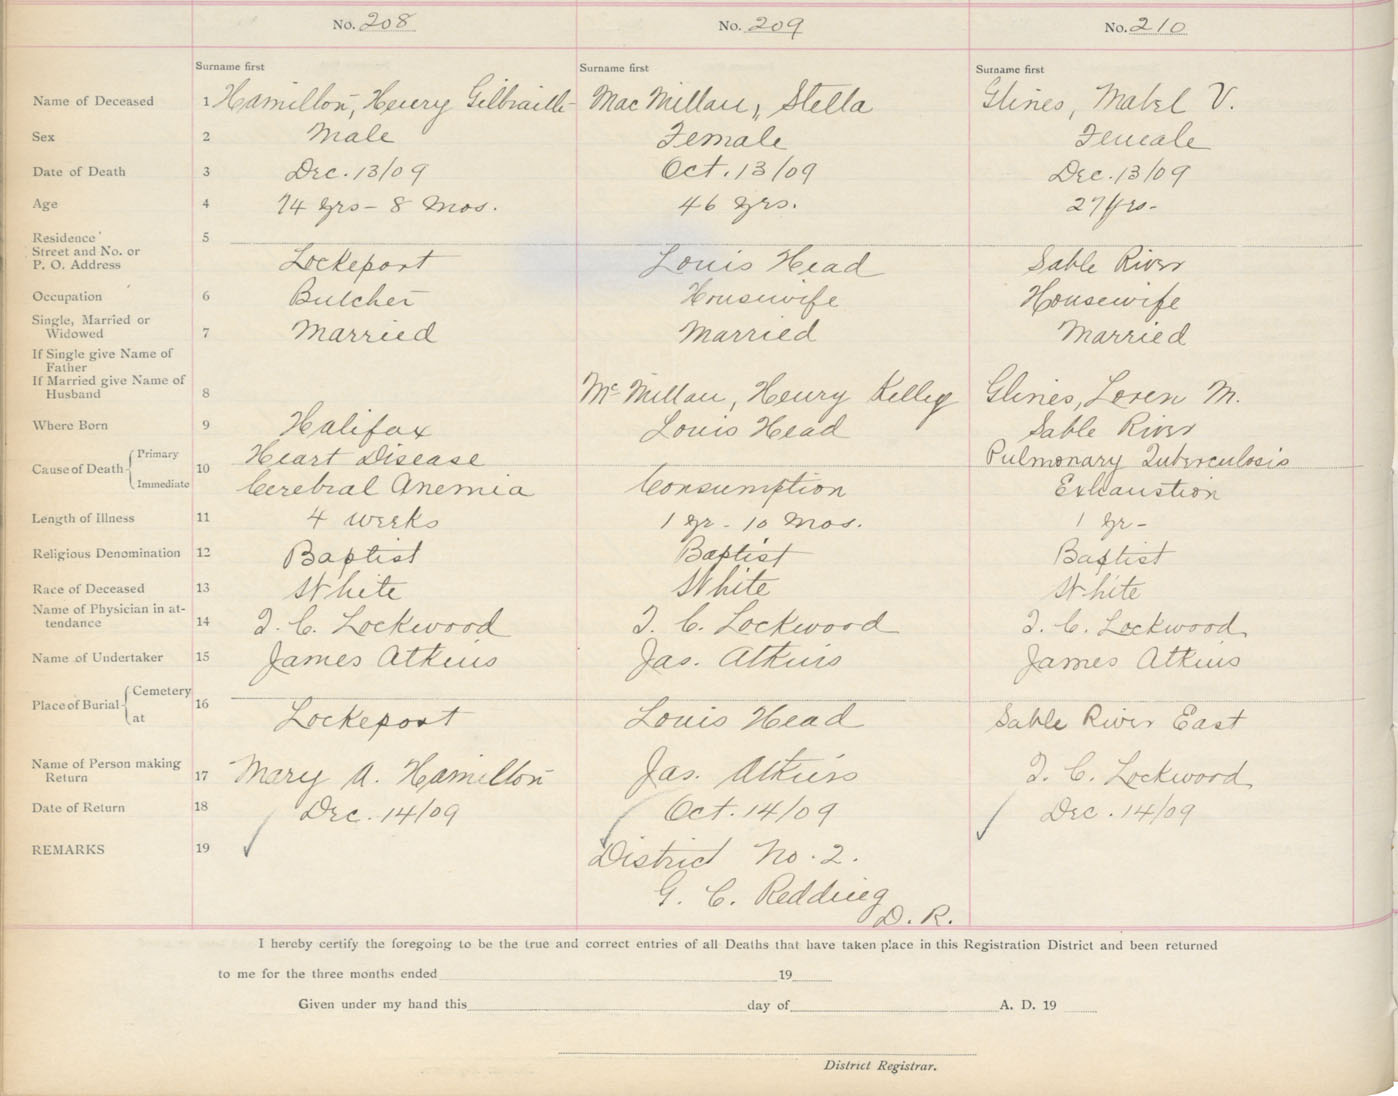 No. 208 No. 209 No. 210
Surname first Surname first Surname first
Name of Deceased 1 Hamilton, Henry Gilbraith MacMillan, Stella Glines, Mabel V.
Sex 2 Male Female Female
Date of Death 3 Dec. 13/09 Oct. 13/09 Dec. 13/09
Age 4 74 yrs - 8 Mos. 46 yrs. 27 yrs -
Residence 5
Street and No. or
P. O. Address Lockeport Louis Head Sable River
Occupation 6 Butcher Housewife Housewife
Single, Married or
Widowed 7 Married Married Married
If Single give Name of
Father
If Married give Name of
Husband 8 McMillan, Henry Kelley Glines, Loren M.
Where Born 9 Halifax Louis Head Sable River
Cause of Death Primary 10 Heart Disease Pulmonary Tuberculosis
Immediate Cerebral Anemia Consumption Exhaustion
Length of Illness 11 4 weeks 1 yr - 10 Mos. 1 yr -
Religious Denomination 12 Baptist Baptist Baptist
Race of Deceased 13 White White White
Name of Physician in at-
tendance 14 T. C. Lockwood T. C. Lockwood T. C. Lockwood
Name of Undertaker 15 James Atkins Jas. Atkins James Atkins
Place of Burial Cemetery 16
at Lockeport Louis Head Sable River East
Name of Person making
Return 17 Mary A. Hamilton Jas. Atkins T. C. Lockwood
Date of Return 18 Dec. 14/09 Oct. 14/09 Dec. 14/09
REMARKS 19 District No. 2.
G. C. Redding
D. R.
I hereby certify the foregoing to be the true and correct entries of all Deaths that have taken place in this Registration District and been returned
to me for the three months ended 19
Given under my hand this day of A. D. 19
District Registrar.